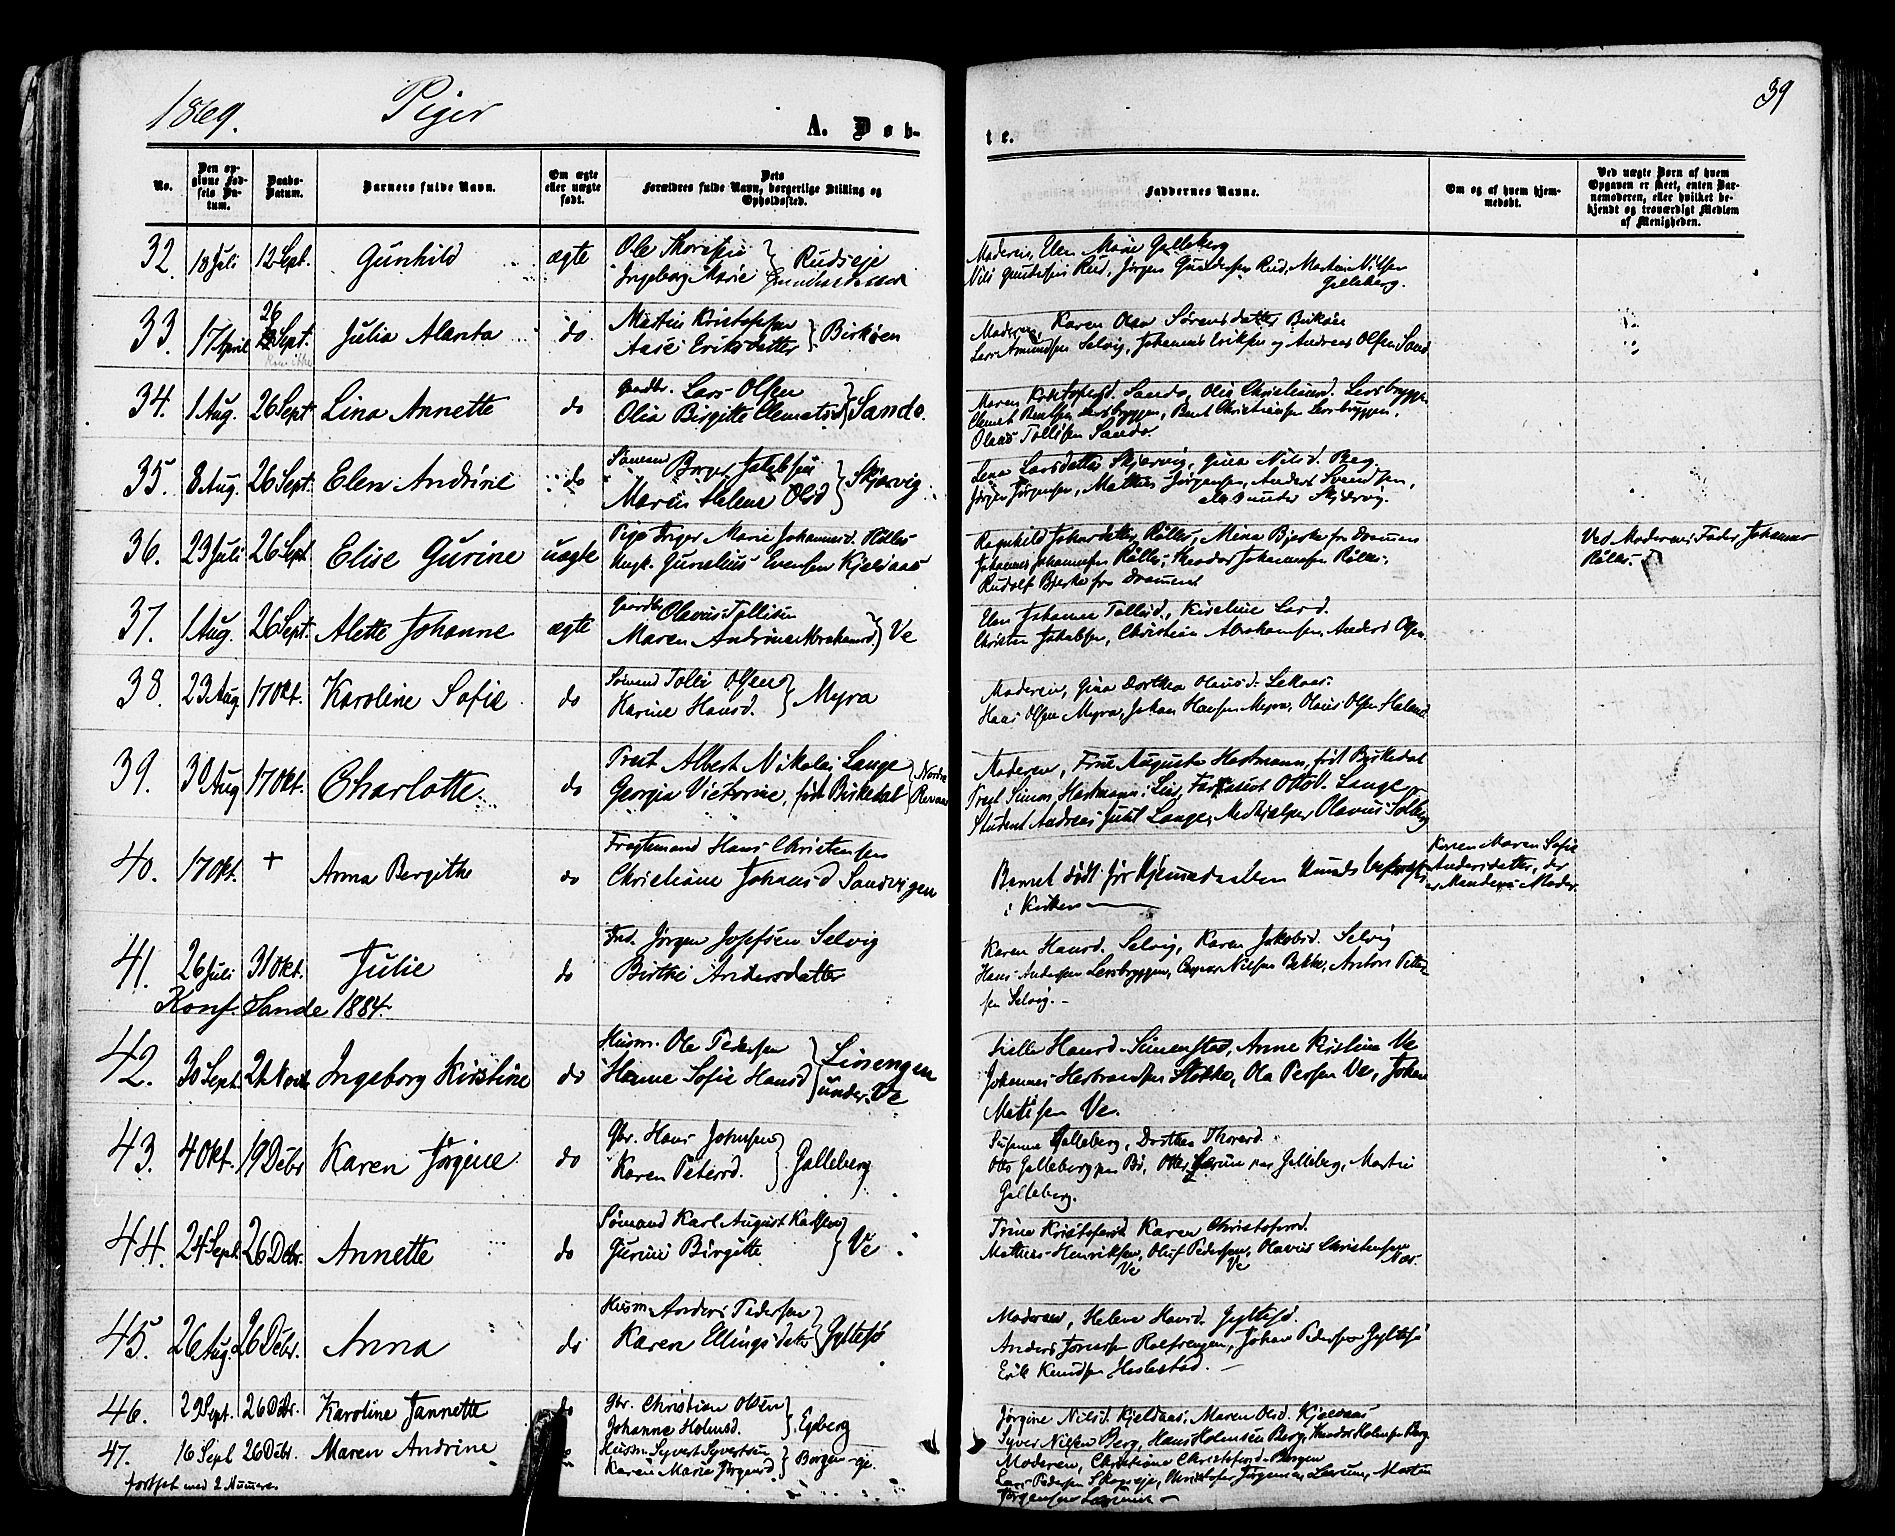 1869.
Piger
A. Døb-
te.
39
No.
Den opgivne Fødsels Datum.
Daabs-Datum.
Barnets fulde Navn.
Om ægte eller uægte født.
Dets Forældres fulde Navn, borgerlige Stilling og Opholdssted.
Faddernes Navne.
Om og af hvem hjemmedøbt.
Ved uægte Børn af hvem Opgaven er skeet, enten Barnemoderen, eller hvilket bekjendt og troværdigt Medlem af Menigheden.
32. 18 Juli 12 Sept. Gunhild ægte
Ole
Ingeborg Marie } Rudseje
Moderen, Elen Marie Galleberg
Rud, Jørgen Gundersen Rud, Martin Nilsen
Galleberg.
33. 17 April 26 Sept. Julia Alanta do
Martin Kristoffersen
Aase Eriksdatter } Birkøen
Moderen, Karen Olea Sørensdatter Birkøen
Lars Amundsen Selvig, Johannes Eriksen og Andreas Olsen Sand
34. 1 Aug. 26 Sept. Lina Annette do
Gaardbr. Lars Olsen
Olia Birgitte Clemetsd } Sando.
Maren Kristofersd. Sando, Olia Christiansd. Lersbryggen
Clemet Bentsen Lersbryggen, Bent Christiansen Lersbryggen,
Olaus Tollefsen Sando.
35. 8 Aug. 26 Sept. Elen Andrine do
Sømand Borger Jakobsen
Maren Helene Olsd } Skjervig
Lena Larsdatter Skjervig, Gina Nilsd. Berg
Jørgen Jørgensen, Mathias Jørgensen, Anders Svendsen,
Skjervig.
36. 23 Juli 26 Sept. Elise Gurine uægte
Pige Inger Marie Johannesd. Røllas
Ungk. Gunelius Evensen Kjeldaas
Ragnhild Johansdatter Røllas, Mina Bjerke fra Drammen
Johannes Johannesen Røllas, Theodor Johannesen Røllas.
Rudolf Bjerke fra Drammen
Ved Moderens Fader, Johannes
Røllas.
37. 1 Aug. 26 Sept. Alette Johanne ægte
Gaardbr Olavus Tollefsen
Maren Andrine Abrahamsd } Ve
Elen Johanne Tollefsd., Kirstine Larsd.
Christen Jakobsen, Christian Abrahamsen, Anders Olsen.
38. 23 Aug 17 Okt. Karoline Sofie do
Sømand Tolev Olsen
Karine Hansd. } Myra
Moderen, Gina Dorthea Olausd. Lekaas.
Hans Olsen Myra, Johan Hansen Myra, Olaus Olsen Haland
39. 30 Aug 17 Okt. Charlotte do
Prest Albert Nikolai Lange
Georgia Victorine, født Birkedal } Nordre Revaa
Moderen, Frue Augusta Hartmann, født Birkedal
Prest Simon Hartmann i Lier, Otto V. Lange
Student Andreas Juul Lange, Medhjælper Olavus Solberg
40. 17 Okt. + Anna Bergithe do
Fragtemand Hans Christensen
Christiane Johansd Sandvigen
Barnet dødt før Hjemmedaabens
i Kirken
Konen Maren Sofie
Andersdatter, der
er Mandens Moder.
41. 26 Juli 31 Okt. Julie do
Jørgen Josefsen Selvig
Birthe Andersdatter
Karen Hansd. Selvig, Karen Jakobsd. Selvig
Hans Andersen Lersbryggen, Nilsen Bakke, Anton Peter-
sen Selvig.
Konf. Sande 1884.
42. 30 Sept. 21 Novb. Ingeborg Kirstine do
Husm. Ole Pedersen
Hanne Sofie Hansd } Linengen under Ve
Hansd. Simenstad, Anne Kristine Ve
Johannes Herbrandsen Stokke, Ola Persen Ve, Johan
Matisen Ve.
43. 4 Okt. 19 Debr Karen Jørgine do
Gbr. Hans Johnsen
Karen Petersd. } Galleberg
Susanne Galleberg, Dorthea Thorsd.
Otto Galleberg paa Bø, Lerum paa Galleberg, Martin
Galleberg.
44. 24 Sept. 26 Debr. Annette do
Sømand Karl August Karlsen
Gurine Birgitte } Ve
Trine Kristofersd Karen Christofersd.
Mathias Henriksen, Oluf Pedersen, Olavus Christensen
Ve Ve Aas.
45. 26 Aug. 26 Debr. Anna do
Husm. Anders Pedersen
Karen Ellingsdatter } Gyltesø
Moderen, Helene Hansd. Gyltesø.
Anders Jonassen Rolfsengen, Johan Pedersen Gyltesø
Erik Knudsen Haslestad.
46. 29 Sept. 26 Debr. Karoline Jannette do
Gbr. Christian Olsen
Johanne Holmsd. } Egeberg
Jørgine Nilsd Kjeldaas, Maren Olsd. Kjeldaas
Syver Nilsen Berg, Hans Holmsen Berg, Holmsen Berg
47. 16 Sept 26 Debr. Maren Andrine
Husm. Syvert Syvertsen
Karen Marie Jørgensd. } Borgen-eje.
Moderen, Christiane Christofersd. Borgen
Lars Pedersen Skogseje, Christofer Jørgensen Lerum, Martin
Jørgensen Lerum
fortsat med 2 Numere.